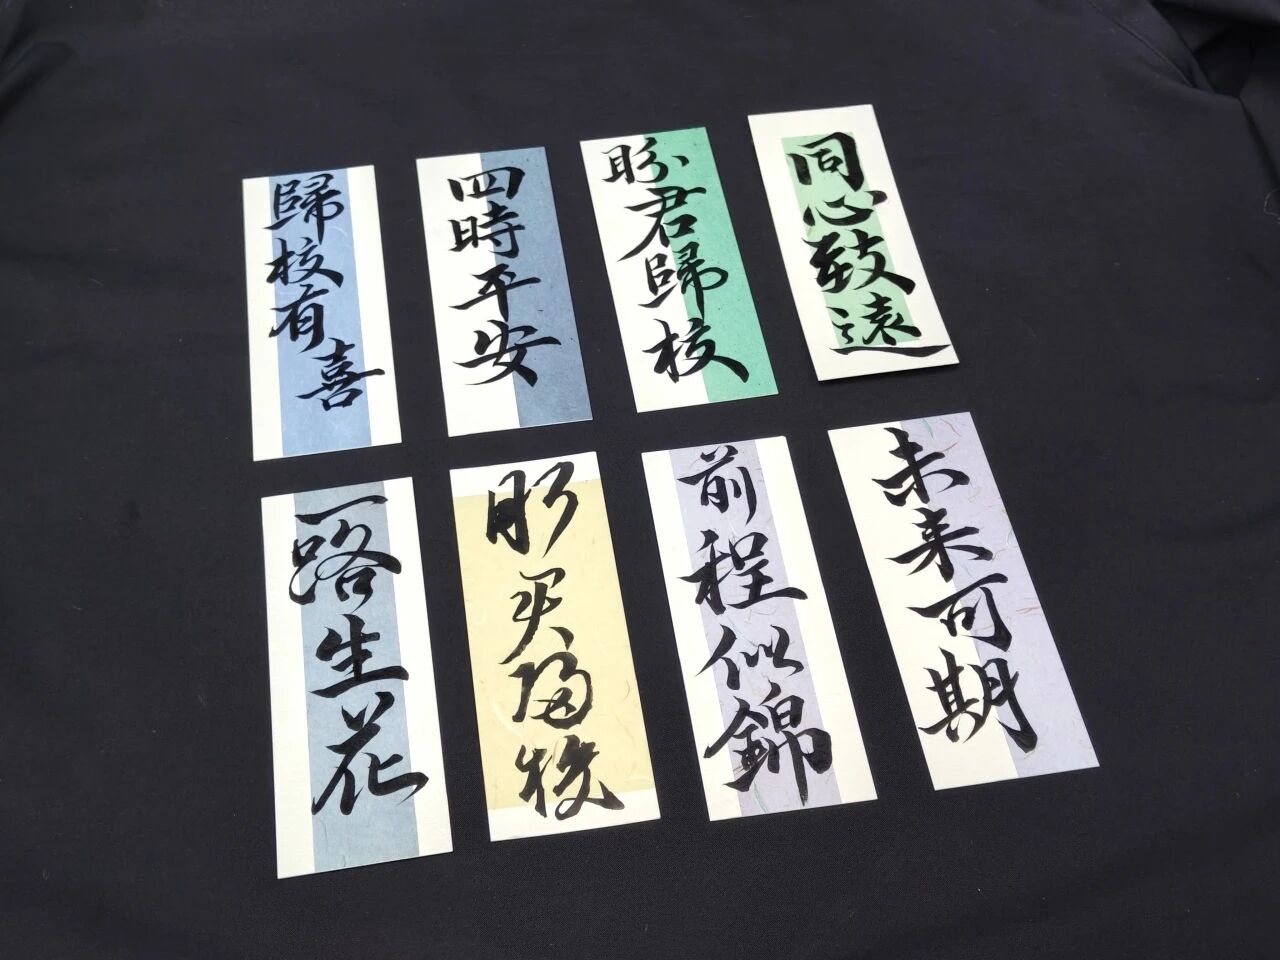 歸校有喜
四時平安
盼君歸校
同心致遠
一路生花
盼君歸校
前程似錦
未来可期